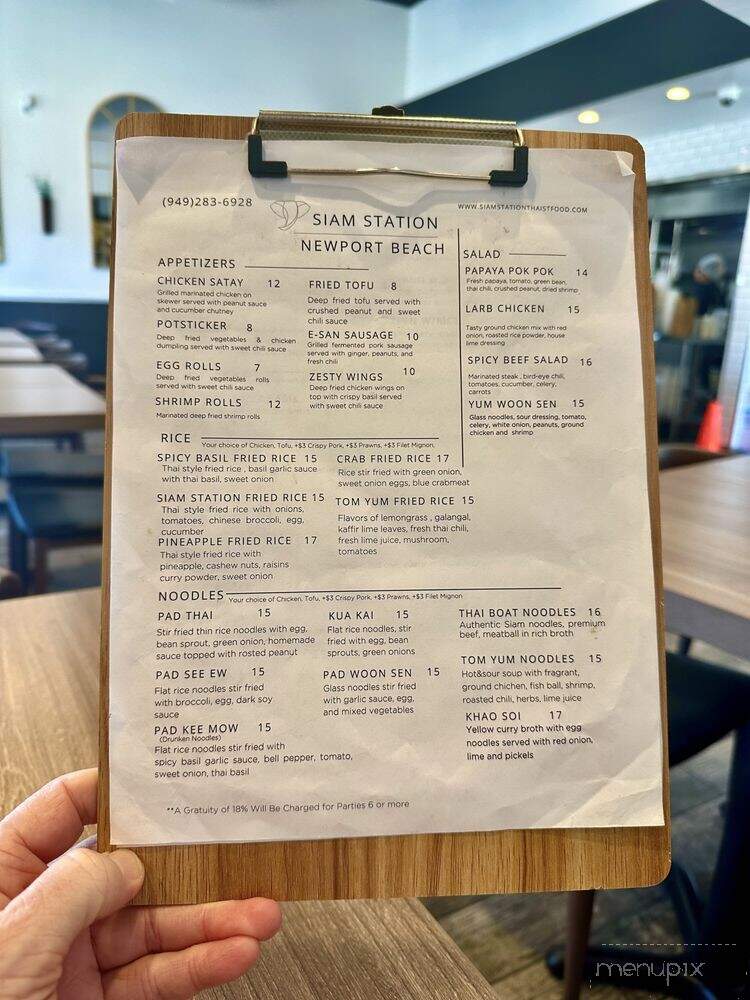 (949)283-6928
WWW.SIAMSTATIONTHAISTFOOD.COM
SIAM STATION
NEWPORT BEACH
APPETIZERS
CHICKEN SATAY 12
Grilled marinated chicken on
skewer served with peanut sauce
and cucumber chutney
POTSTICKER 8
Deep fried vegetables & chicken
dumpling served with sweet chili sauce
EGG ROLLS 7
Deep fried vegetables rolls
served with sweet chili sauce
SHRIMP ROLLS 12
Marinated deep fried shrimp rolls
FRIED TOFU 8
Deep fried tofu served with
crushed peanut and sweet
chili sauce
E-SAN SAUSAGE 10
Grilled fermented pork sausage
served with ginger, peanuts, and
fresh chili
ZESTY WINGS 10
Deep fried chicken wings on
top with crispy basil served
with sweet chili sauce
SALAD
PAPAYA POK POK 14
Fresh papaya, tomato, green bean,
thai chili, crushed peanut, dried shrimp
LARB CHICKEN 15
Tasty ground chicken mix with red
onion, roasted rice powder, house
lime dressing
SPICY BEEF SALAD 16
Marinated steak , bird-eye chili,
tomatoes, cucumber, celery,
carrots
YUM WOON SEN 15
Glass noodles, sour dressing, tomato,
celery, white onion, peanuts, ground
chicken and shrimp
RICE Your choice of Chicken, Tofu, +$3 Crispy Pork, +$3 Prawns, +$3 Filet Mignon,
SPICY BASIL FRIED RICE 15
Thai style fried rice , basil garlic sauce
with thai basil, sweet onion
SIAM STATION FRIED RICE 15
Thai style fried rice with onions,
tomatoes, chinese broccoli, egg,
cucumber
PINEAPPLE FRIED RICE 17
Thai style fried rice with
pineapple, cashew nuts, raisins
curry powder, sweet onion
CRAB FRIED RICE 17
Rice stir fried with green onion,
sweet onion eggs, blue crabmeat
TOM YUM FRIED RICE 15
Flavors of lemongrass , galangal,
kaffir lime leaves, fresh thai chili,
fresh lime juice, mushroom,
tomatoes
NOODLES Your choice of Chicken, Tofu, +$3 Crispy Pork, +$3 Prawns, +$3 Filet Mignon
PAD THAI 15
Stir fried thin rice noodles with egg,
bean sprout, green onion, homemade
sauce topped with rosted peanut
PAD SEE EW 15
Flat rice noodles stir fried
with broccoli, egg, dark soy
sauce
PAD KEE MOW 15
(Drunken Noodles)
Flat rice noodles stir fried with
spicy basil garlic sauce, bell pepper, tomato,
sweet onion, thai basil
KUA KAI 15
Flat rice noodles, stir
fried with egg, bean
sprouts, green onions
PAD WOON SEN 15
Glass noodles stir fried
with garlic sauce, egg,
and mixed vegetables
THAI BOAT NOODLES 16
Authentic Siam noodles, premium
beef, meatball in rich broth
TOM YUM NOODLES 15
Hot&sour soup with fragrant,
ground chichen, fish ball, shrimp,
roasted chili, herbs, lime juice
KHAO SOI 17
Yellow curry broth with egg
noodles served with red onion,
lime and pickels
**A Gratuity of 18% Will Be Charged for Parties 6 or more
menupix